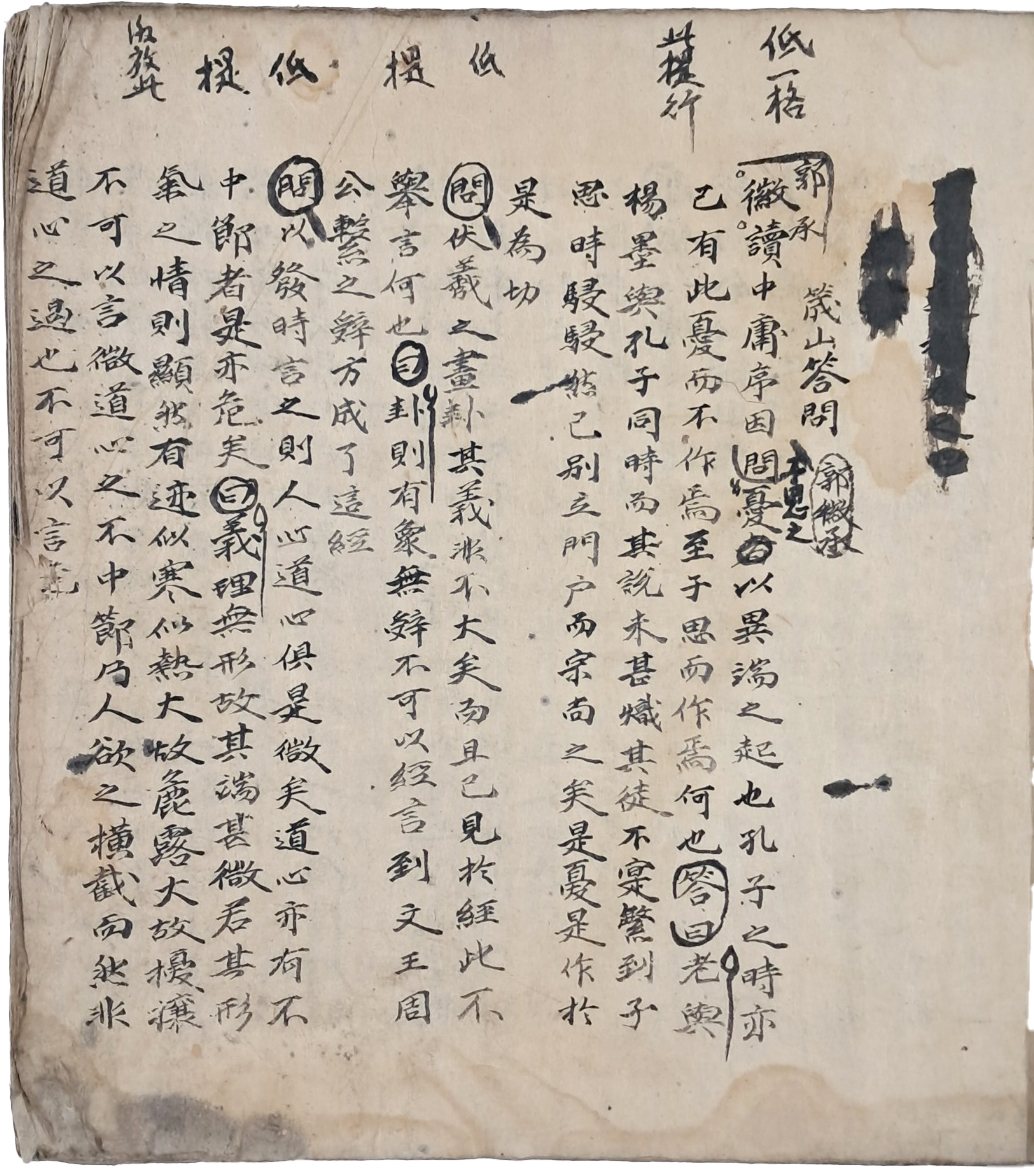 低一格
此提行
低
提
低
提
後放此
箴山答問
郭徵承
子思之
郭承
徽讀中庸序因問憂曰以異端之起也孔子之時亦
已有此憂而不作焉至于思而作焉何也答曰老與
楊墨與孔子同時而其說未甚熾其徒不寔繁到子
思時駸駸然已別立門户而宗尚之矣是憂是作於
是為切
問伏羲之畫卦其義非不大矣而且已見於經此不
舉言何也曰卦則有象無辭不可以經言到文王周
公繫之辭方成了這經
問以發時言之則人心道心俱是微矣道心亦有不
中節者是亦危矣曰義理無形故其端甚微若其形
氣之情則顯然有迹似寒似熱大故麁露大故擾攘
不可以言微道心之不中節乃人欲之橫截而然非
道心之過也不可以言危